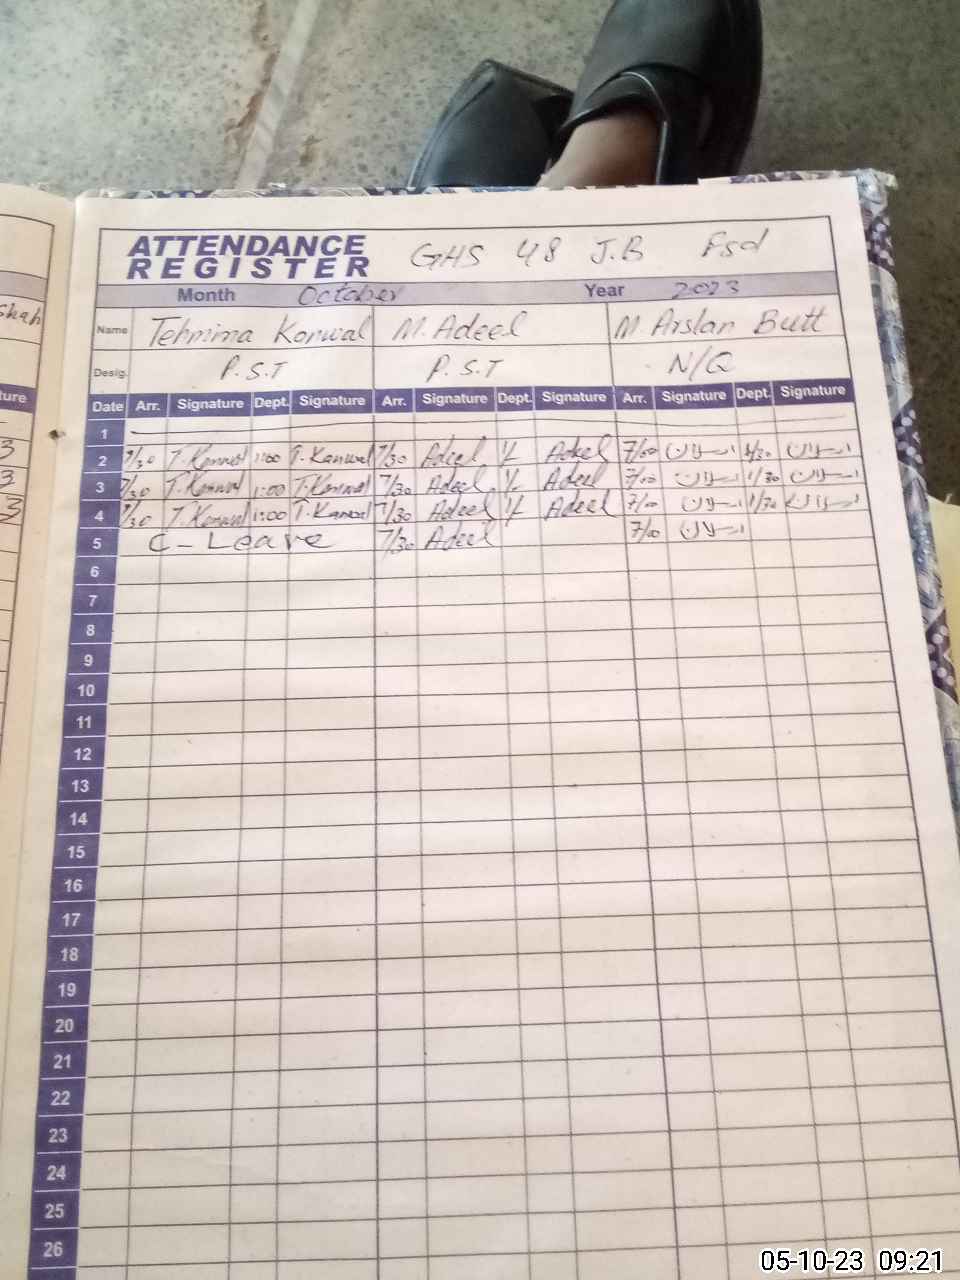 ATTENDANCE REGISTER GHS 48 J.B Fsd
Month October Year 2023
Shah
Name Tehmima Konwal M. Adeel M. Arslan Butt
Desig. P.S.T P.S.T N/Q
ture Date Arr. Signature Dept. Signature Arr. Signature Dept. Signature Arr. Signature Dept. Signature
1
3 2 7/30 T.Konwal 1:00 T.Kanwal 7/30 Adeel 1/ Adeel 7/00 ارسلان 1/30 ارسلان
3 3 7/30 T.Konwal 1:00 T.Konwal 7/30 Adeel 1/ Adeel 7/00 ارسلان 1/30 ارسلان
3 4 7/30 T.Konwal 1:00 T.Kanwal 7/30 Adeel 1/ Adeel 7/00 ارسلان 1/30 ارسلان
5 C-Leave 7/30 Adeel 7/00 ارسلان
6
7
8
9
10
11
12
13
14
15
16
17
18
19
20
21
22
23
24
25
26
05-10-23 09:21